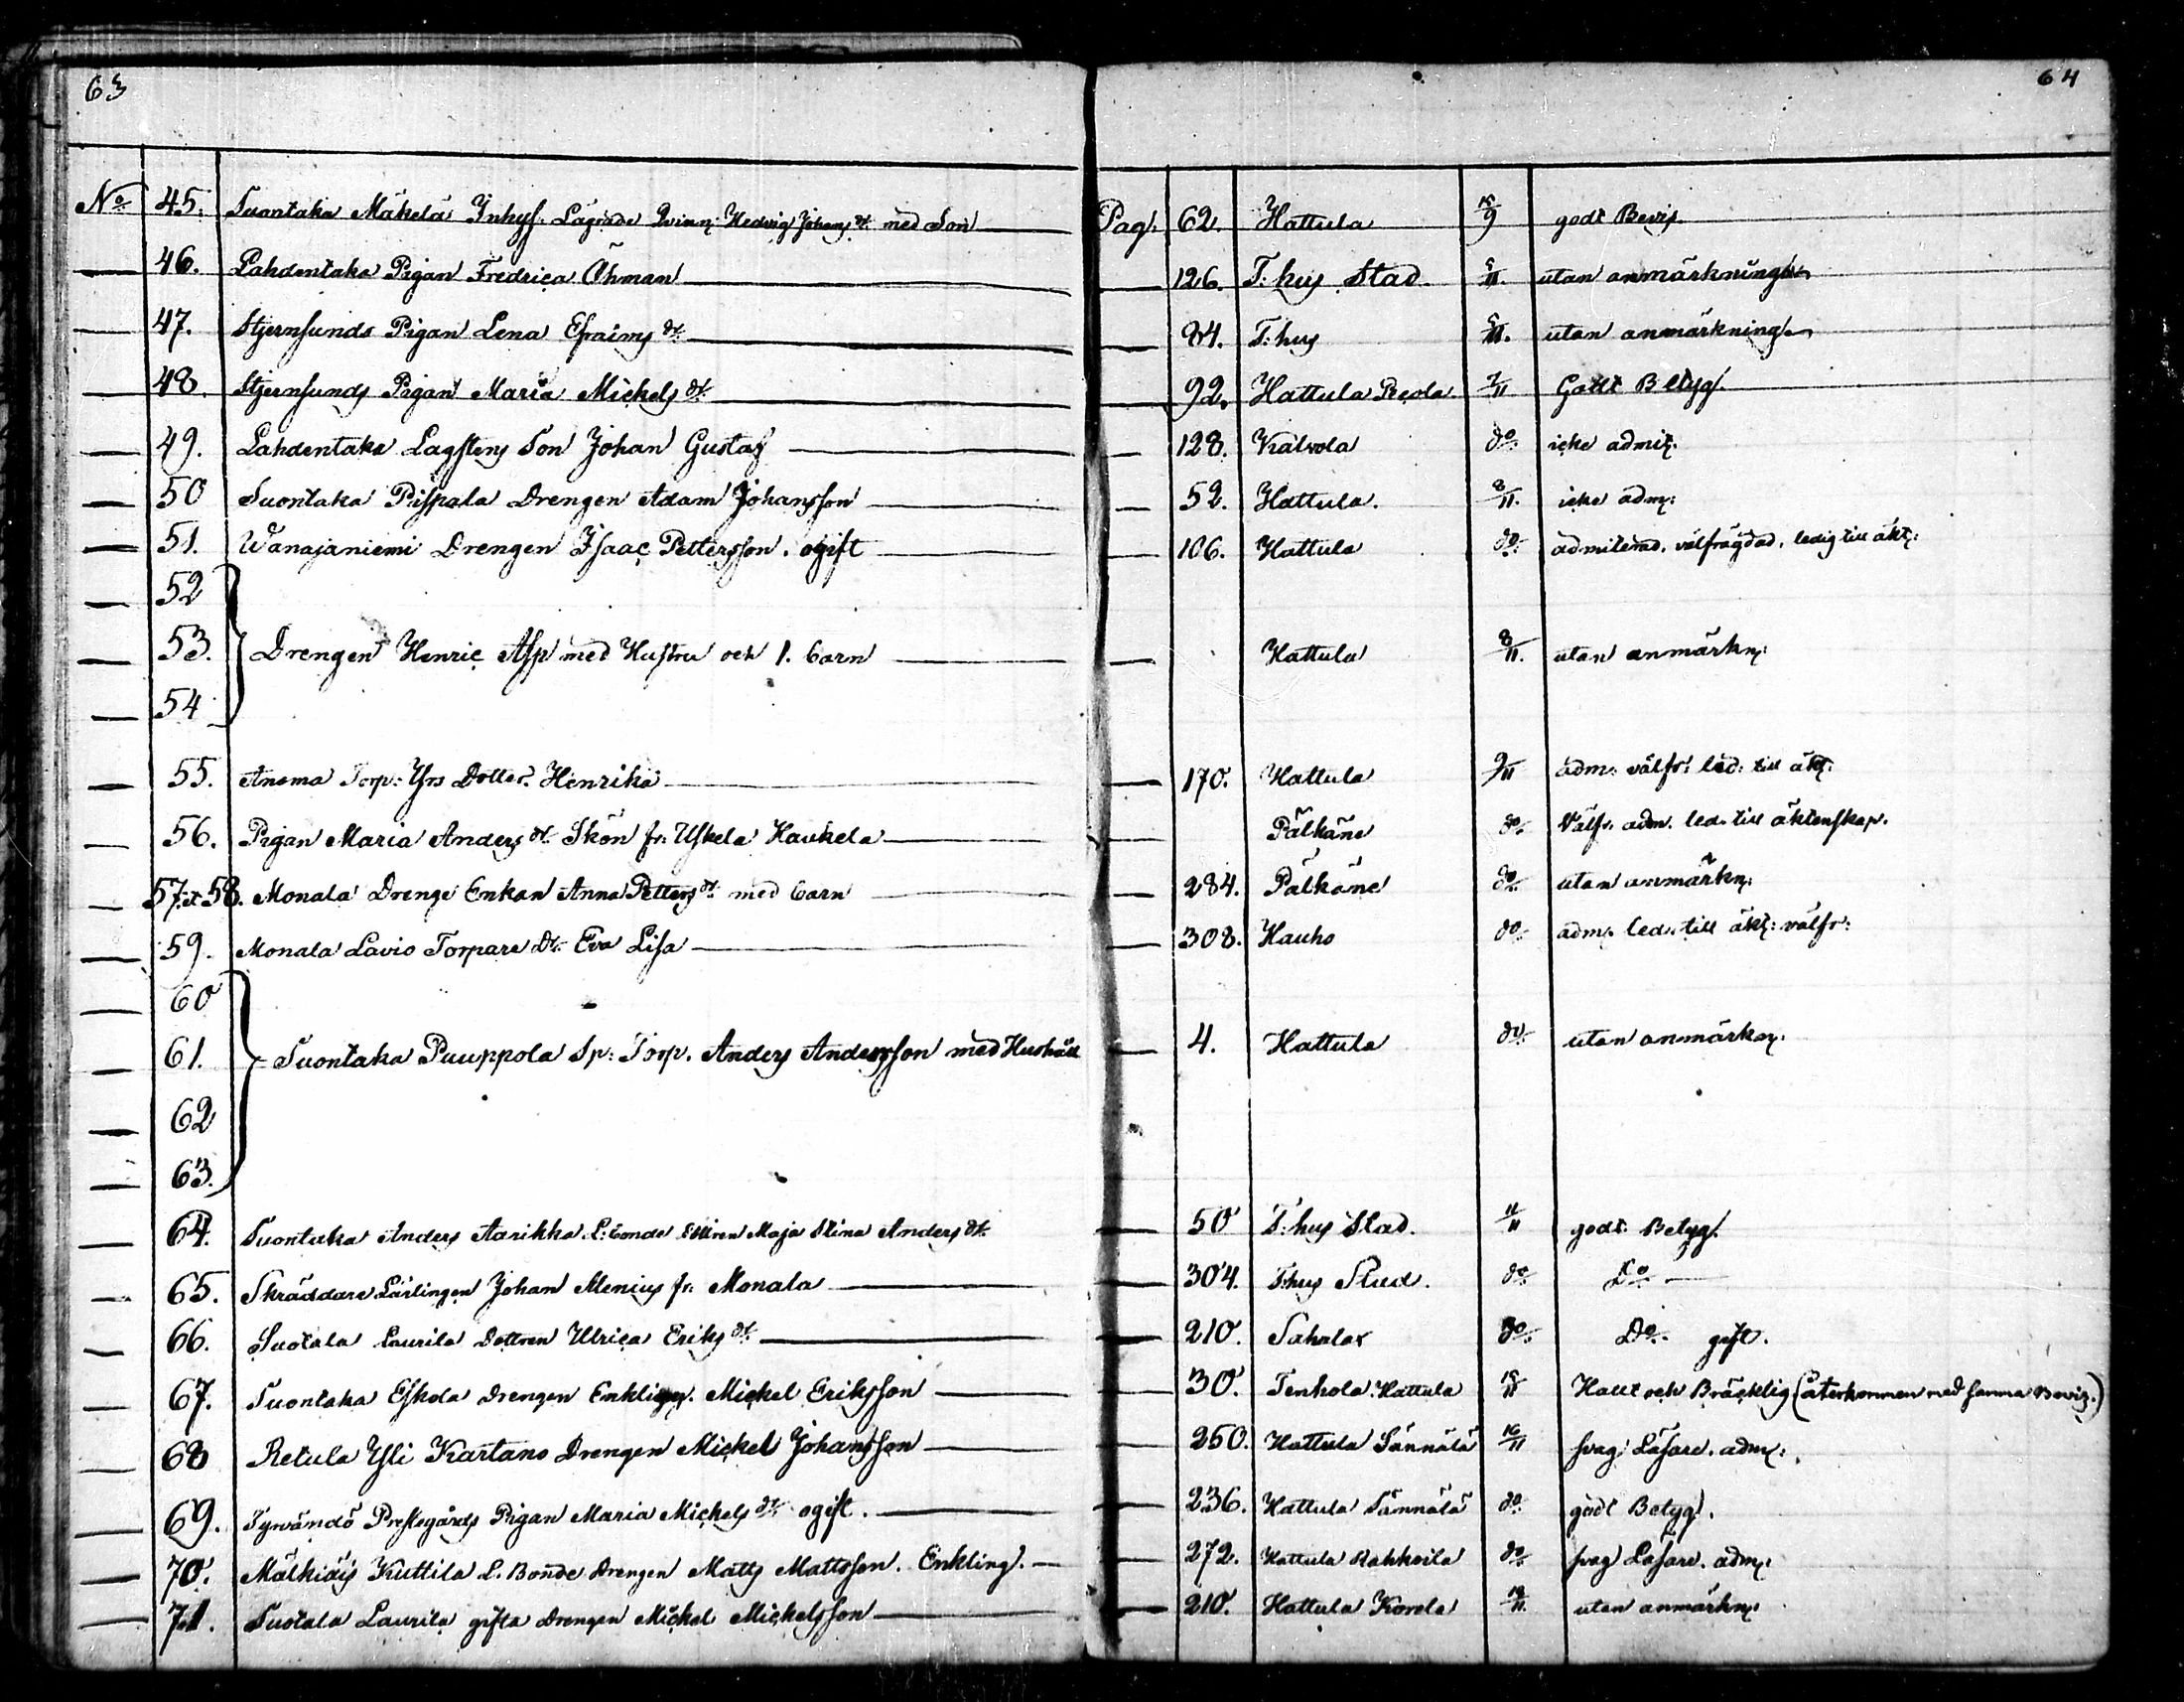 63
64
No 45. Suontaka Mäkelä Inhys. Lägrade Qvinn: Hedvig Johansdr. med Son Pag. 62. Hattula 15/9 godt Bevis
46. Lahdentaka Pigan Fredrica Öhman 126. T:hus Stad. 5/11. utan anmärkning
47. Stjernsunds Pigan Lena Efraimsdr. 84. T:hus 5/11. utan anmärkning
48. Stjernsunds Pigan Maria Mickelsdr. 92. Hattula 7/11 Godt Betyg.
49. Lahdentaka Lagstens Son Johan Gustaf 128. Kalvola do. icke admit.
50 Suontaka Pispala Drengen Adam Johansson 52. Hattula. 8/11. icke adm:
51. Wanajaniemi Drengen Isaac Pettersson. ogift 106. Hattula do. admiterad, välfrägdad, ledig till äkt:
52
53. Drengen Henric Asp med Hustru och 1. barn Hattula 8/11. utan anmärkn:
54
55. Anoma Torp: Yrs Dotter Henrika 170. Hattula 9/11 adm: välfr: led: till äkt:
56. Pigan Maria Andersdr. Skön fr: Uskela Haukela Pälkäne do. Välfr. adm. led. till äktenskap.
57. & 58. Monala Drenge Enkan Anna Pettersdr. med barn 284. Pälkäne do. utan anmärkn:
59. Monala Lavio Torpare Dr. Eva Lisa 308. Hauho do. adm. led. till äkt: välfr:
60
61. Suontaka Puuppola Sp: Torp. Anders Andersson med Hushåll 4. Hattula do. utan anmärkn.
62
63.
64. Suontaka Anders Aarikka L: bonde Maja Stina Andersdr. 50 T:hus Stad. 11/11 godt Betyg.
65. Skräddare Lärlingen Johan Menius fr: Monala 304. T:hus Stad. do. Do.
66. Suotala Laurila Dottren Ulrica Eriksdr. 210. Sahalax do. Do. gift.
67. Suontaka Eskola Drengen Enkling. Mickel Eriksson 30. Tenhola. Hattula 15/11 Halt och Bräcklig (återkommen med samma Bevis.)
68 Retula Yli Kartano Drengen Mickel Johansson 260. Hattula Sännälä 16/11 svag Läsare. adm:
69. Tyrvändö Prestegårds Pigan Maria Mickelsdr. ogift. 236. Hattula Sännälä do. godt Betyg.
70. Mälkiäis Kuttila L. Bonde Drengen Matts Mattsson. Enkling. 272. Hattula Rahkoila do. svag Läsare. adm:
71. Suotala Laurila gifta Drengen Mickel Mickelsson 210. Hattula 18/11. utan anmärkn: